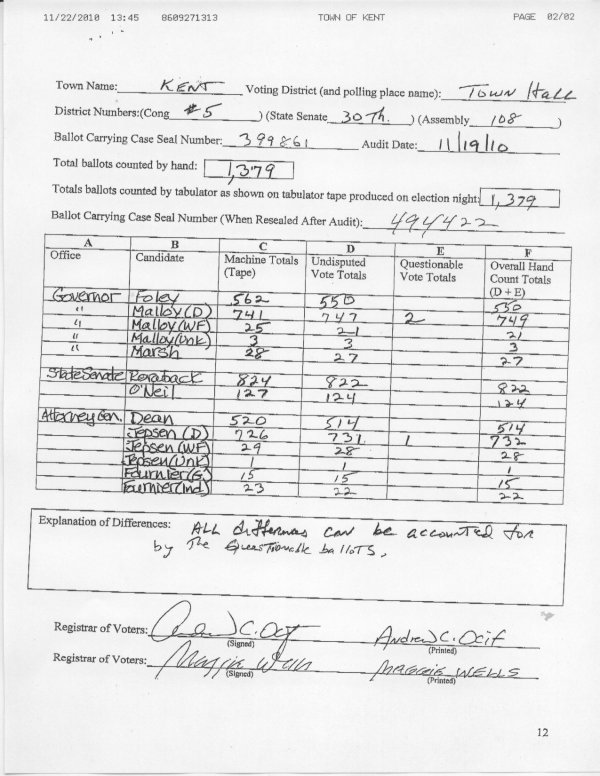 11/22/2010 13:45 8609271313 TOWN OF KENT PAGE 02/02
Town Name: KENT Voting District (and polling place name): TOWN Hall
District Numbers:(Cong #5 ) (State Senate 30Th. ) (Assembly 108 )
Ballot Carrying Case Seal Number: 399861 Audit Date: 11/19/10
Total ballots counted by hand: 1,379
Totals ballots counted by tabulator as shown on tabulator tape produced on election night: 1,379
Ballot Carrying Case Seal Number (When Resealed After Audit): 494422
A B C D E F
Office Candidate Machine Totals (Tape) Undisputed Vote Totals Questionable Vote Totals Overall Hand Count Totals (D + E)
Governor Foley 562 550 550
" Malloy (D) 741 747 2 749
" Malloy (WF) 25 21 21
" Malloy (Unk) 3 3 3
" Marsh 28 27 27
State Senate Roraback 824 822 822
O'Neil 127 124 124
Attorney Gen. Dean 520 514 514
Jepsen (D) 726 731 1 732
Jepsen (WF) 29 28 28
Jepsen (Unk) 1 1 1
Fournier (G.) 15 15 15
Fournier (Ind.) 23 22 22
Explanation of Differences: ALL differences can be accounted for
by The Questionable ballots.
Registrar of Voters: Andrew C. Ocif
(Signed) (Printed)
Registrar of Voters: Maggie Wells MAGGIE WELLS
(Signed) (Printed)
12